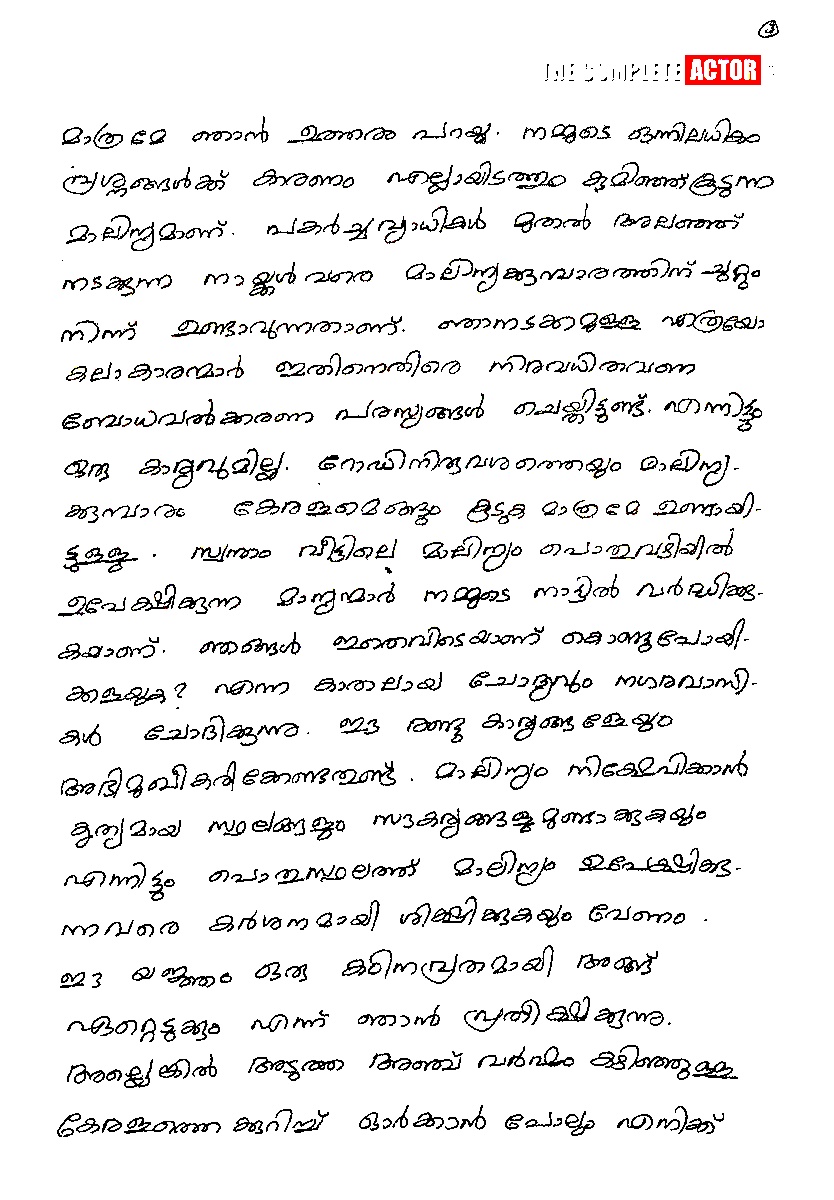 3
THE COMPLETE ACTOR
മാത്രമേ ഞാൻ ഉത്തരം പറയൂ. നമ്മുടെ ഒന്നിലധികം
പ്രശ്നങ്ങൾക്ക് കാരണം എല്ലായിടത്തും കുമിഞ്ഞ്കൂടുന്ന
മാലിന്യമാണ്. പകർച്ചവ്യാധികൾ മുതൽ അലഞ്ഞ്
നടക്കുന്ന നായ്ക്കൾ വരെ മാലിന്യക്കൂമ്പാരത്തിന് ചുറ്റും
നിന്ന് ഉണ്ടാവുന്നതാണ്. ഞാനടക്കമുള്ള എത്രയോ
കലാകാരന്മാർ ഇതിനെതിരെ നിരവധിതവണ
ബോധവൽക്കരണ പരസ്യങ്ങൾ ചെയ്തിട്ടുണ്ട്. എന്നിട്ടും
ഒരു കാര്യവുമില്ല. റോഡിനിരുവശത്തെയും മാലിന്യ-
ക്കൂമ്പാരം കേരളമെങ്ങും കൂടുക മാത്രമേ ഉണ്ടായി-
ട്ടുള്ളൂ. സ്വന്തം വീട്ടിലെ മാലിന്യം പൊതുവഴിയിൽ
ഉപേക്ഷിക്കുന്ന മാന്യന്മാർ നമ്മുടെ നാട്ടിൽ വർദ്ധിക്കു-
കയാണ്. ഞങ്ങൾ ഇതെവിടെയാണ് കൊണ്ടുപോയി-
ക്കളയുക? എന്ന കാതലായ ചോദ്യവും നഗരവാസി-
കൾ ചോദിക്കുന്നു. ഈ രണ്ടു കാര്യങ്ങളേയും
അഭിമുഖീകരിക്കേണ്ടതുണ്ട്. മാലിന്യം നിക്ഷേപിക്കാൻ
കൃത്യമായ സ്ഥലങ്ങളും സൗകര്യങ്ങളുമുണ്ടാക്കുകയും
എന്നിട്ടും പൊതുസ്ഥലത്ത് മാലിന്യം ഉപേക്ഷിക്കു-
ന്നവരെ കർശനമായി ശിക്ഷിക്കുകയും വേണം.
ഈ യജ്ഞം ഒരു കഠിനവ്രതമായി അങ്ങ്
ഏറ്റെടുക്കും എന്ന് ഞാൻ പ്രതീക്ഷിക്കുന്നു.
അല്ലെങ്കിൽ അടുത്ത അഞ്ച് വർഷം കഴിഞ്ഞുള്ള
കേരളത്തെ കുറിച്ച് ഓർക്കാൻ പോലും എനിക്ക്